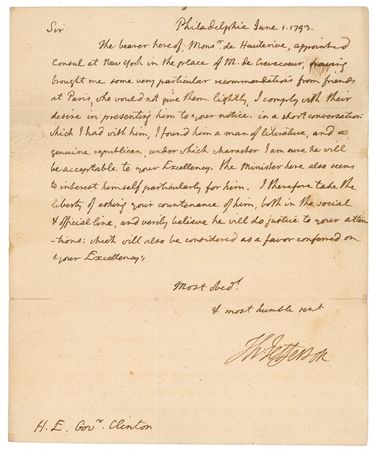 Sir Philadelphia June 1. 1793.
The bearer hereof, Monsr. de Hauterive, appointed
Consul at New York in the place of M. de Crevecoeur, having
brought me some very particular recommendations from friends
at Paris, who would not give them lightly, I comply with their
desire in presenting him to your notice. in a short conversation
which I had with him, I found him a man of literature, and a
genuine republican, under which character I am sure he will
be acceptable to your Excellency. the Minister here also seems
to interest himself particularly for him. I therefore take the
liberty of asking your countenance of him, both in the social
& official line, and verily believe he will do justice to your atten
-tions: which will also be considered as a favor conferred on
your Excellency's
Most obedt.
& most humble servt
Th: Jefferson
H. E. Govr. Clinton